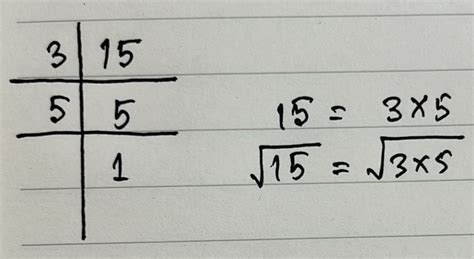 3 | 15
5 | 5
1
15 = 3×5
√15 = √3×5